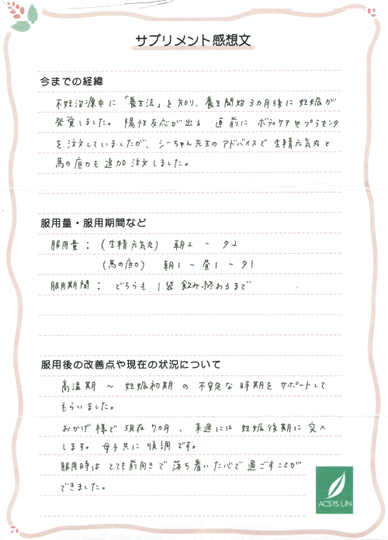 サプリメント感想文
今までの経緯
不妊治療中に「養生法」を知り、養生開始3カ月後に妊娠が
発覚しました。陽性反応が出る直前に ボディケアやプラセンタ
を注文していましたが、シーちゃん先生のアドバイスで生精元気丸と
馬の底力も追加注文しました。
服用量・服用期間など
服用量：(生精元気丸) 朝2 - 夕2
(馬の底力) 朝1 - 昼1 - 夕1
服用期間：どちらも 1袋 飲み終わるまで
服用後の改善点や現在の状況について
高温期 〜 妊娠初期 の 不安定な時期をサポートして
もらいました。
おかげ様で現在7カ月、来週には妊娠後期に突入
します。母子共に順調です。
服用時はとても前向きで落ち着いた心で過ごすことが
できました。
ACSIS LIN